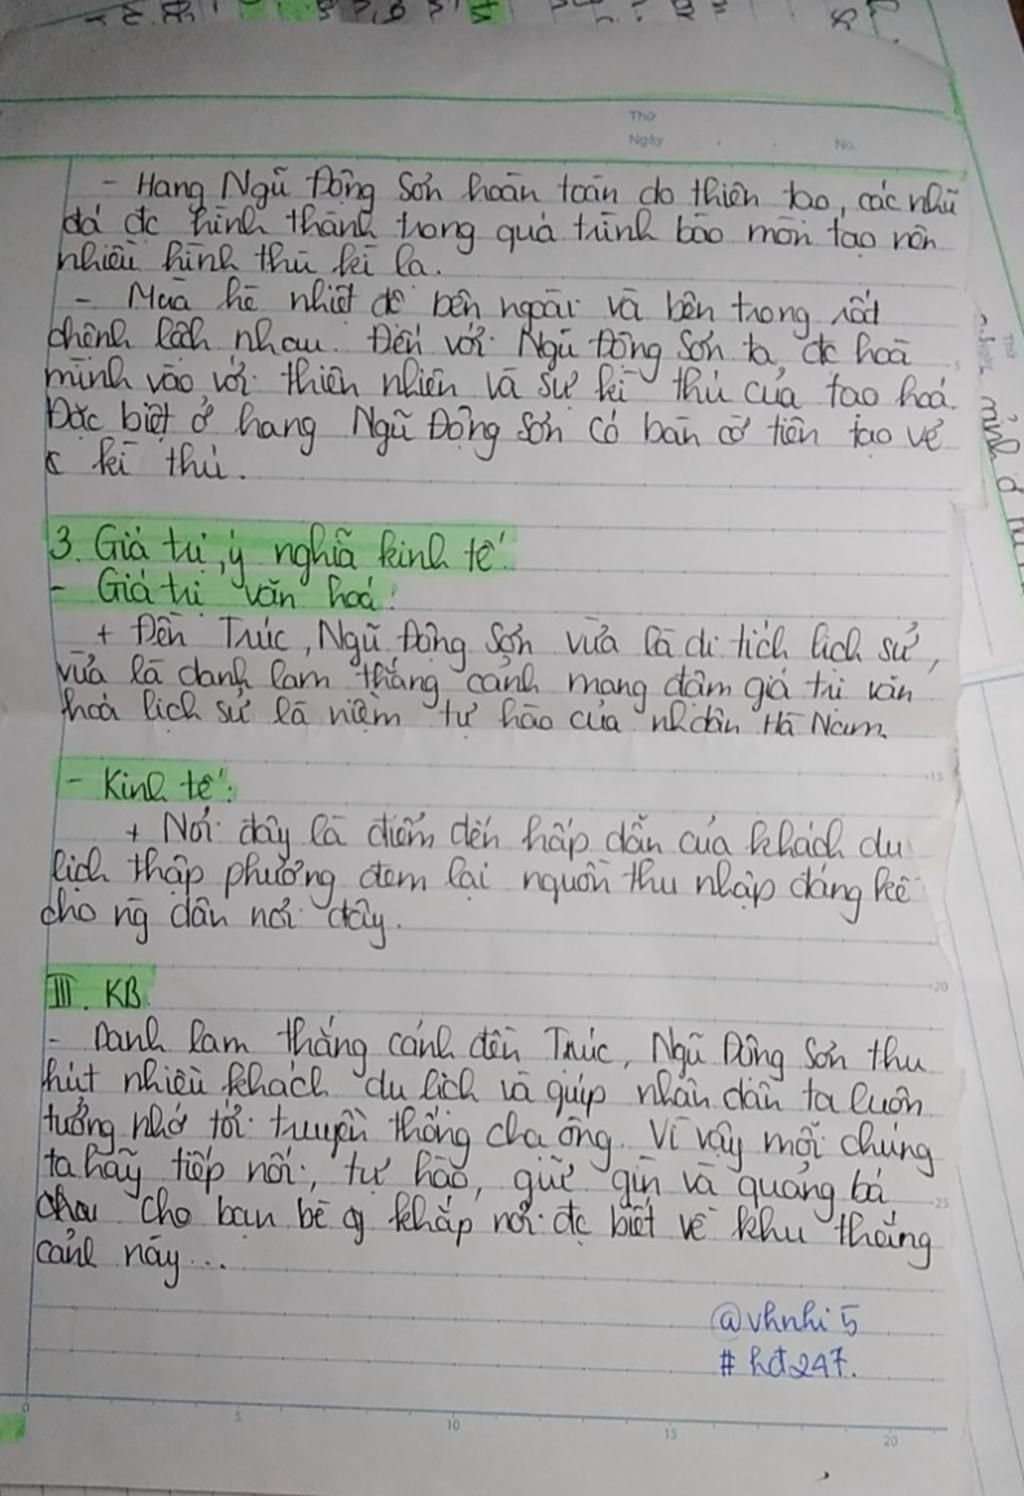 Thứ
Ngày
No.
- Hang Ngũ Động Sơn hoàn toàn do thiên tạo, các nhũ
đá đc hình thành trong quá trình bào mòn tạo nên
nhiều hình thù kì lạ.
- Mùa hè nhiệt độ bên ngoài và bên trong rất
chênh lệch nhau. Đến với Ngũ Động Sơn ta đc hoà
mình vào với thiên nhiên và sự kì thú của tạo hoá.
Đặc biệt ở hang Ngũ Động Sơn có bàn cờ tiên tạo vẻ
kì thú.
3. Giá trị, ý nghĩa kinh tế:
- Giá trị văn hoá:
+ Đền Trúc, Ngũ Động Sơn vừa là di tích lịch sử,
vừa là danh lam thắng cảnh mang đậm giá trị văn
hoá lịch sử là niềm tự hào của nhdân Hà Nam.
- Kinh tế:
+ Nơi đây là điểm đến hấp dẫn của khách du
lịch thập phương đem lại nguồn thu nhập đáng kể
cho ng dân nơi đây.
III. KB
- Danh lam thắng cảnh đền Trúc, Ngũ Động Sơn thu
hút nhiều khách du lịch và giúp nhân dân ta luôn
tưởng nhớ tới truyền thống cha ông. Vì vậy mỗi chúng
ta hãy tiếp nối, tự hào, giữ gìn và quảng bá
cho bạn bè khắp nơi đc biết về khu thắng
cảnh này...
@vhnhi5
#hđ247.